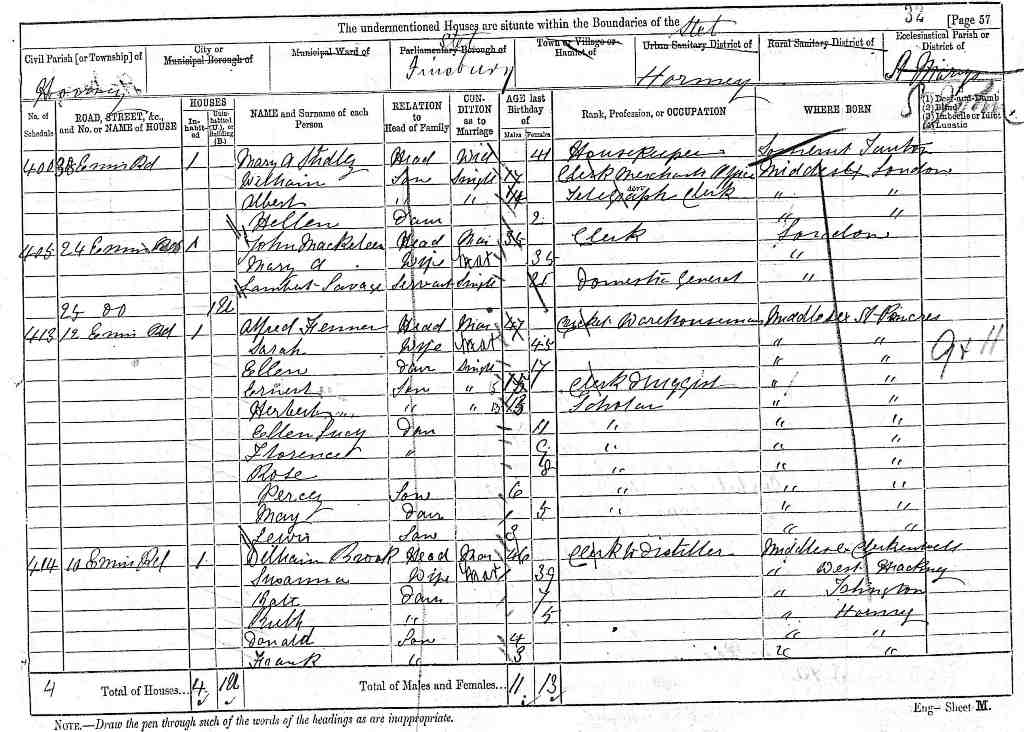 The undermentioned Houses are situate within the Boundaries of the
32 [Page 57
Civil Parish [or Township] of
City or Municipal Borough of
Municipal Ward of
Parliamentary Borough of
Town or Village or Hamlet of
Urban Sanitary District of
Rural Sanitary District of
Ecclesiastical Parish or District of
Stet Stet
Hornsey Finsbury Hornsey St Marys
No. of Schedule
ROAD, STREET, &c., and No. or NAME of HOUSE
HOUSES
Inhabited
Uninhabited (U.), or Building (B.)
NAME and Surname of each Person
RELATION to Head of Family
CONDITION as to Marriage
AGE last Birthday of
Males Females
Rank, Profession, or OCCUPATION
WHERE BORN
(1) Deaf-and-Dumb
(2) Blind
(3) Imbecile or Idiot
(4) Lunatic
Ennis Rd 1 Mary A Head Wid 41 Housekeeper Somerset Taunton
William Son Single 17 Clerk Merchants Office Middlesex London
Albert " " 14 Telegraph Clerk " "
Hellen Daur 2 " "
405 24 Ennis Road 1 John Head Mar 35 Clerk London
Mary A Wife Mar 35 "
Lambert Savage Servant Single Domestic General "
25 DO 1U
413 12 Ennis Rd 1 Alfred Fenner Head Mar 47 Warehouseman Middlesex St Pancras
Sarah Wife Mar 45 " "
9 & 11
Ellen Daur Single 17 " "
Ernest Son " 15 Clerk Druggist "
Herbert " " 13 Scholar " "
Ellen Lucy Daur 11 " " "
Florence " 9 " " "
Rose 8 " " "
Percy Son 6 " " "
May Daur 5 " " "
Lewis Son 3 " "
414 10 Ennis Rd 1 William Brook Head Mar 46 Clerk to Distiller Middlesex Clerkenwell
Susanna Wife Mar 39 " West Hackney
Kate Daur 7 " Islington
Ruth " 5 " Hornsey
Donald Son 4 " "
Frank " 3 " "
4 Total of Houses... 4 1U Total of Males and Females... 11 13
NOTE.—Draw the pen through such of the words of the headings as are inappropriate.
Eng— Sheet M.